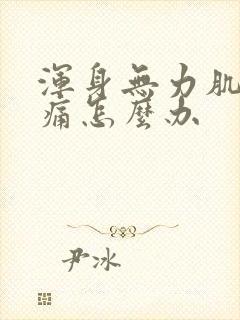 渾身無力肌
痛怎麼办
尹冰